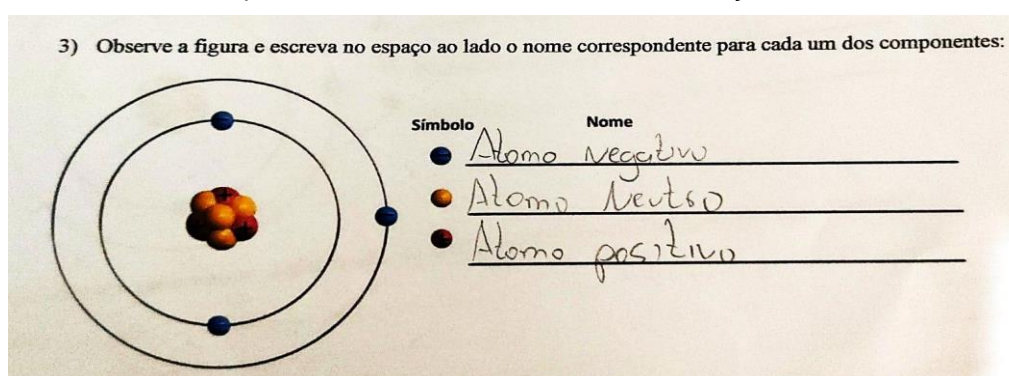 3) Observe a figura e escreva no espaço ao lado o nome correspondente para cada um dos componentes:
Símbolo Nome
Atomo Negativo
Atomo Neutro
Atomo positivo